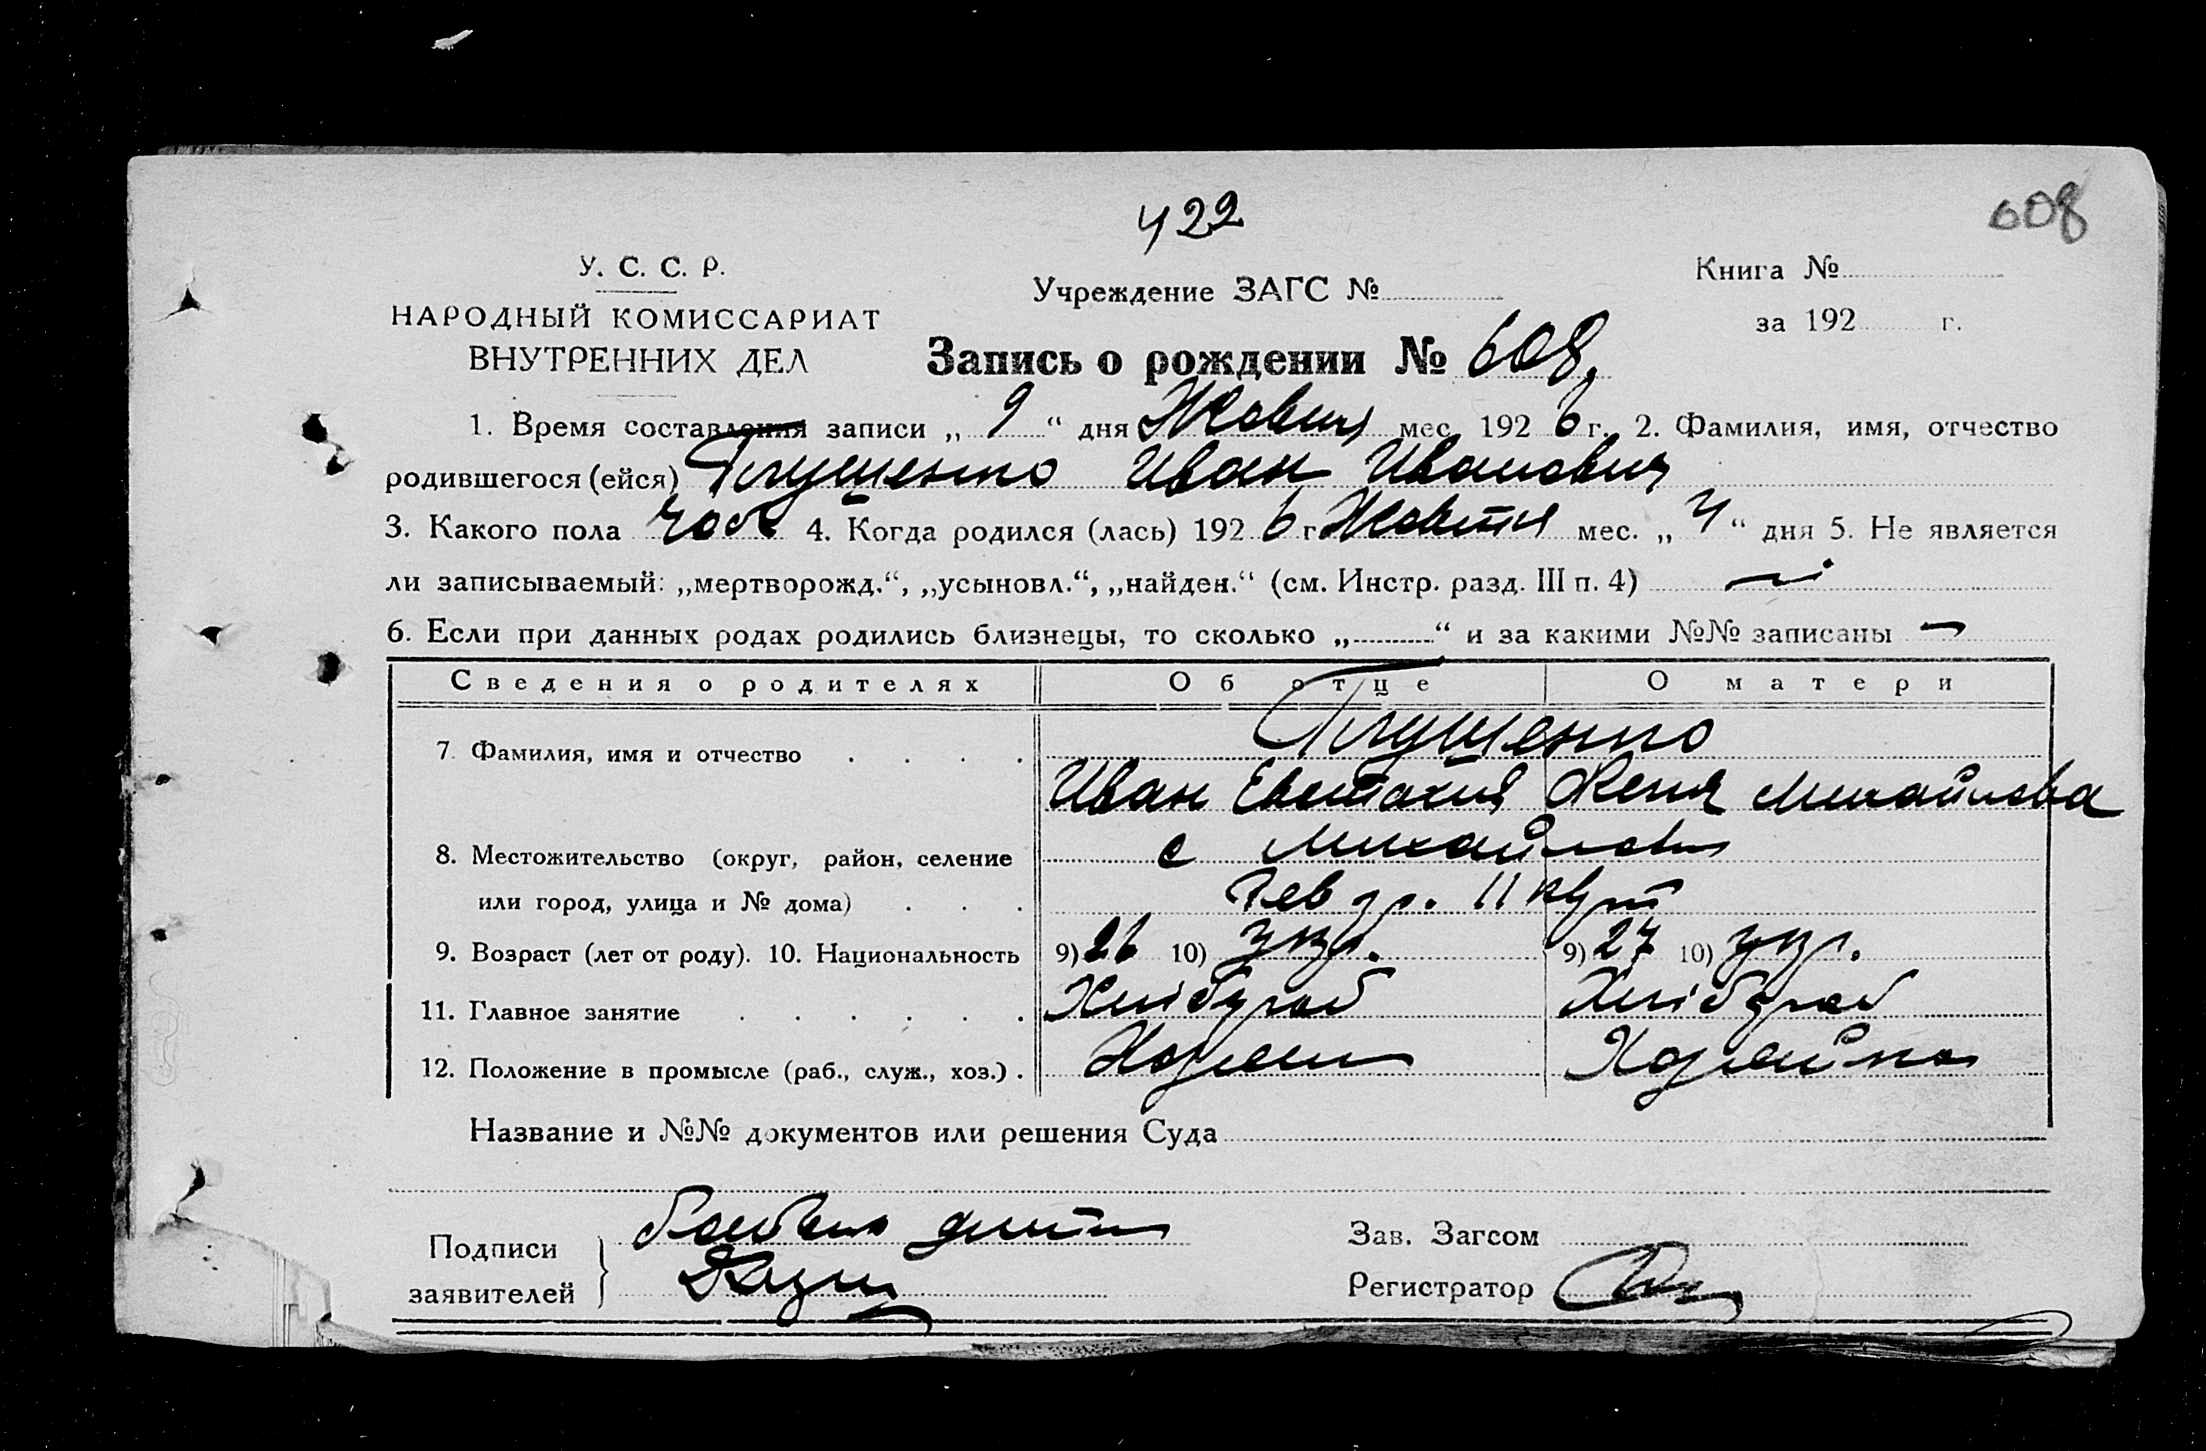 422
608
У. С. С. Р.
НАРОДНЫЙ КОМИССАРИАТ
ВНУТРЕННИХ ДЕЛ
Учреждение ЗАГС №
Книга №
за 192 г.
Запись о рождении № 608
1. Время составления записи „ 9 “ дня Жовтня мес. 192 6 г. 2. Фамилия, имя, отчество
родившегося (ейся) Глущенко Иван Иванович
3. Какого пола чол 4. Когда родился (лась) 192 6 г Жовтня мес. „ 4 “ дня 5. Не является
ли записываемый: „мертворожд.“, „усыновл.“, „найден.“ (см. Инстр. разд. III п. 4)
6. Если при данных родах родились близнецы, то сколько „ “ и за какими №№ записаны
Сведения о родителях Об отце О матери
7. Фамилия, имя и отчество Глущенко
Иван Евстахия Женя Михайлова
8. Местожительство (округ, район, селение с Михайловка
или город, улица и № дома)
9. Возраст (лет от роду). 10. Национальность 9) 26 10) укр. 9) 27 10) укр.
11. Главное занятие Хлібороб Хлібороб
12. Положение в промысле (раб., служ., хоз.) Хозяин Хозяйка
Название и №№ документов или решения Суда
Подписи
заявителей
Зав. Загсом
Регистратор